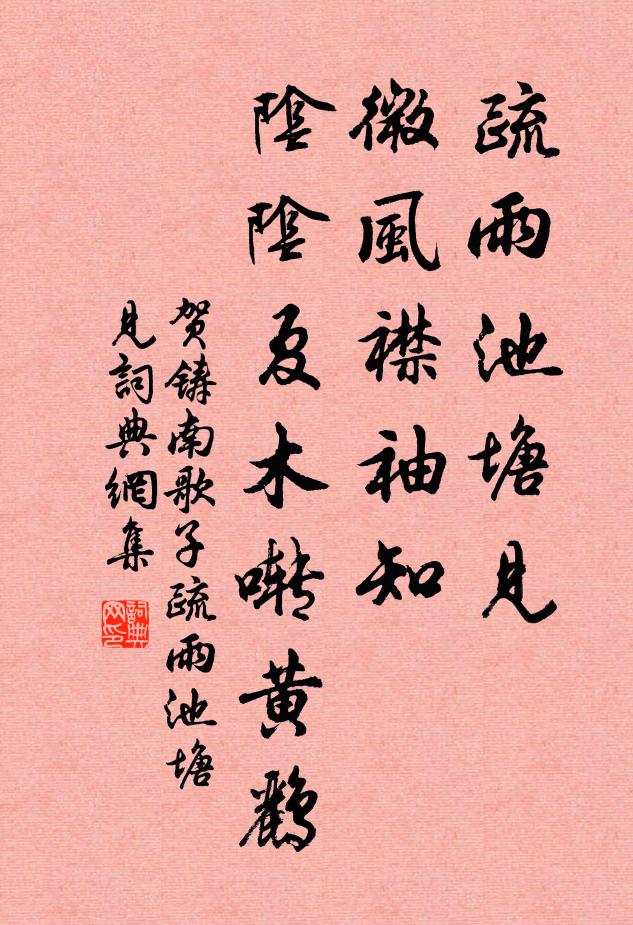 疏雨池塘見
微風襟袖知
陰陰夏木囀黃鸝
賀鑄南歌子疏雨池塘
見詞典網集
詞典网印